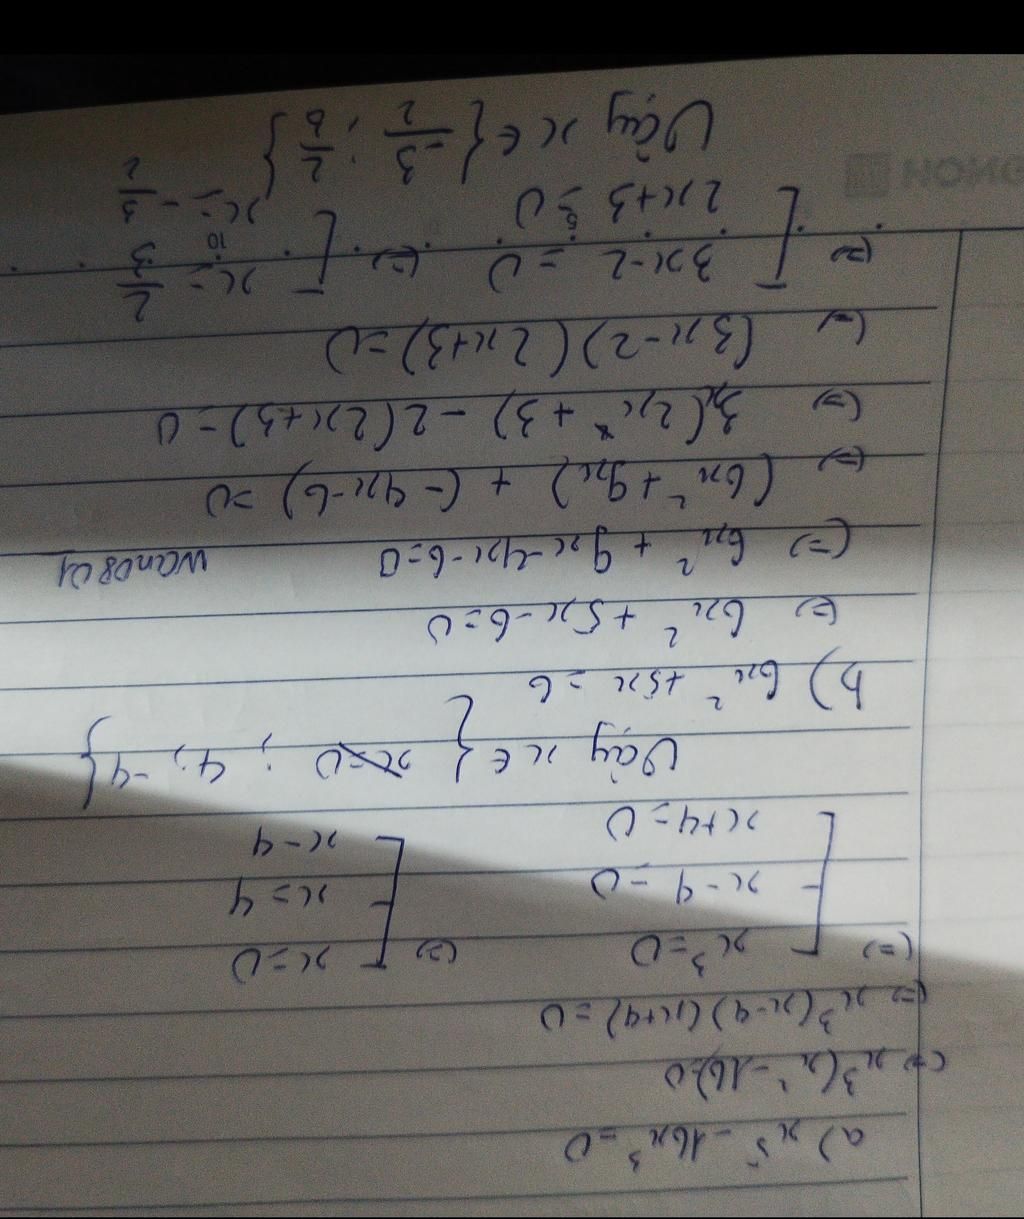 a) x⁵ - 16x³ = 0
(=) x³(x² - 16)=0
(=) x³(x-4)(x+4) = 0
(=) [ x³ = 0 (=) [ x = 0
x - 4 = 0 x = 4
x + 4 = 0 x - 4
Vậy x ∈ { x=0 ; 4; -4 }
b) 6x² + 5x = 6
(=) 6x² + 5x - 6 = 0
(=) 6x² + 9x - 4x - 6 = 0 wano804
(=) (6x² + 9x) + (-4x - 6) = 0
(=) 3x(2x + 3) - 2(2x+3) = 0
(=) (3x - 2)(2x+3) = 0
(=) [ 3x - 2 = 0 (=) [ x = 2/3
2x + 3 = 0 x = - 3/2
5 10
Vậy x ∈ { -3/2 ; 2/3 }